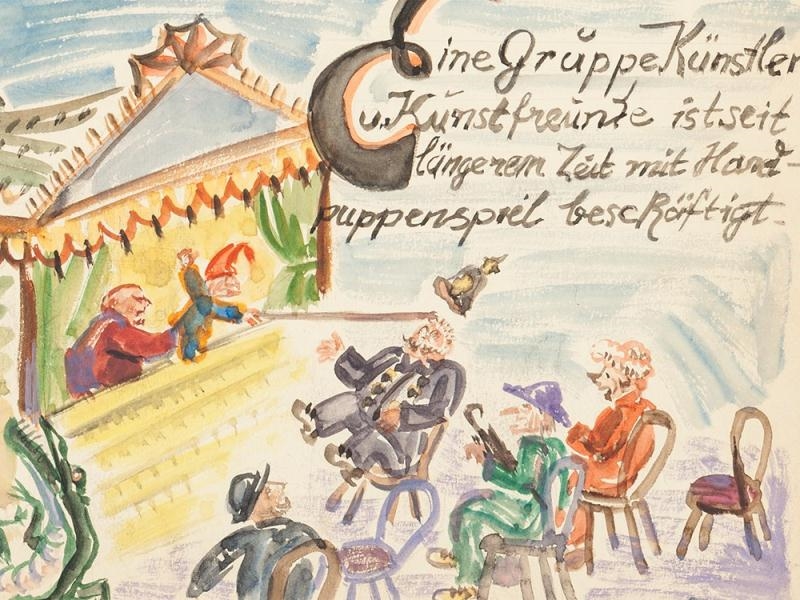 Eine Gruppe Künstler
u. Kunstfreunde ist seit
längerem Zeit mit Hand-
puppenspiel beschäftigt.